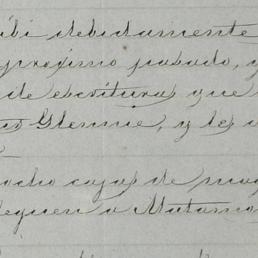 ibi debidamente
proximo pasado, y
de escritura que
Glennie, y les
ocho cajas de
lleguen a Matanc